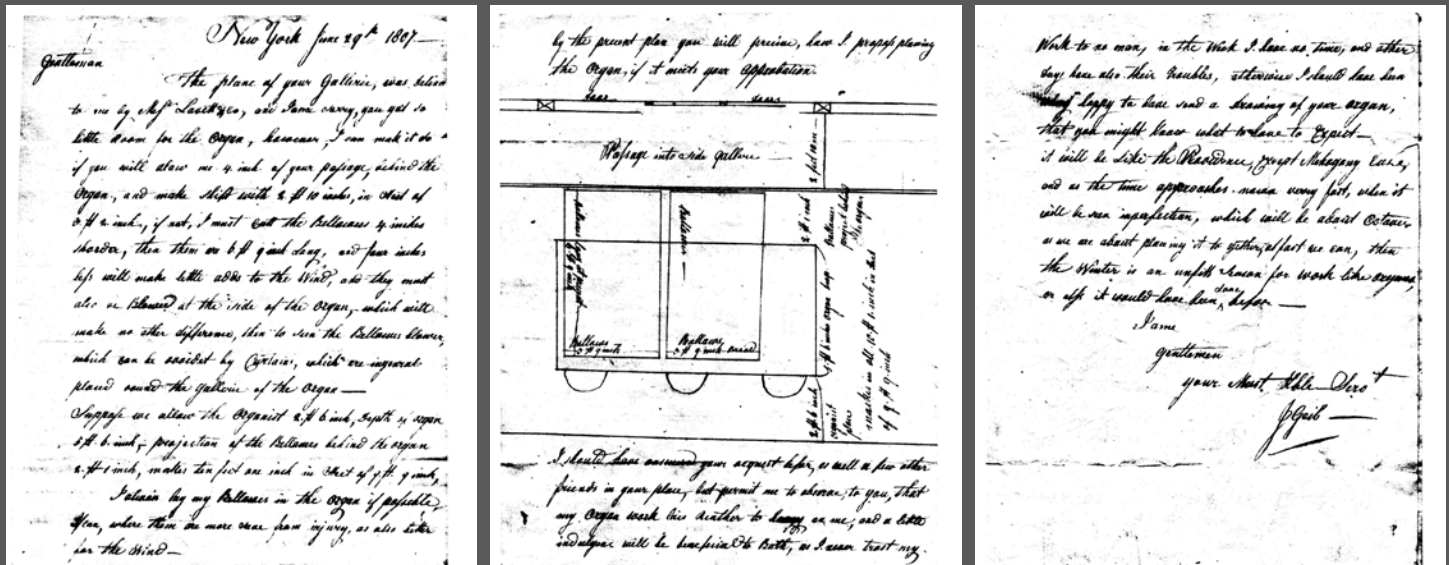 New York June 29th 1807
Gentleman
The plane of your Gallerie, was
to me by and I ame you got so
little room for the Organ, however, I can make it do
if you will alow me 4 inch of your passage, behind the
Organ, and make shift with 2 ft 10 inches, in sted of
3 ft 2 inch, if not, I must cutt the Bellowses 4 inches
shorder, then them are 6 ft 9 inch long, and four inches
less will make little to the Wind, and they must
also be Blowed at the side of the Organ, which will
make no other difference, then to seen the Bellowes blower,
which can be by Curtains, which are ingeneral
placed round the gallerie of the Organ
Suppose we allow the Organist 2 ft 6 inch, Depth of organ
5 ft. 6. inch, projection of the Bellowses behind the organ
2 ft 1 inch, makes ten feet one inch in sted of 9 ft. 9 inch,
I lay my Bellowses in the Organ if possible,
where them are more from injury, as also better
for the Wind
by the present plan you will how I propose planing
the Organ, if it meets your approbation.
door doors
Passage into side gallerie
2 ft 10 in
Bellows 6 ft 9 inch
Bellows
2 ft 1 inch
Bellowses behind the organ
5 ft 6 inches organ
Bellows
3 ft 9 inch
Bellows
3 ft 9 inch
2 ft 6 inch
organist
place
makes in all 10 ft 1 inch in sted
of 9 ft 9 inch
I should have your request before, as well a few other
friends in your place, but permit me to observe, to you, that
my Organ work on me, and a little
indulgence will be beneficial to Both, as I never trust my
Work to no man, in the Week I have no time, and other
days have also their troubles, otherwise I should have been
happy to have send a drawing of your organ,
that you might know what to have to Expect
it will be Like the Providence, Except Mahogany Case,
and as the time approaches verry fast, when it
will be seen inperfection, which will be about October
as we are about planing it to gether, as fast we can, then
the Winter is an unfitt season for work like organs,
or else it would have been done before
I ame
Gentlemen
your Most Hble Servt
J Geib